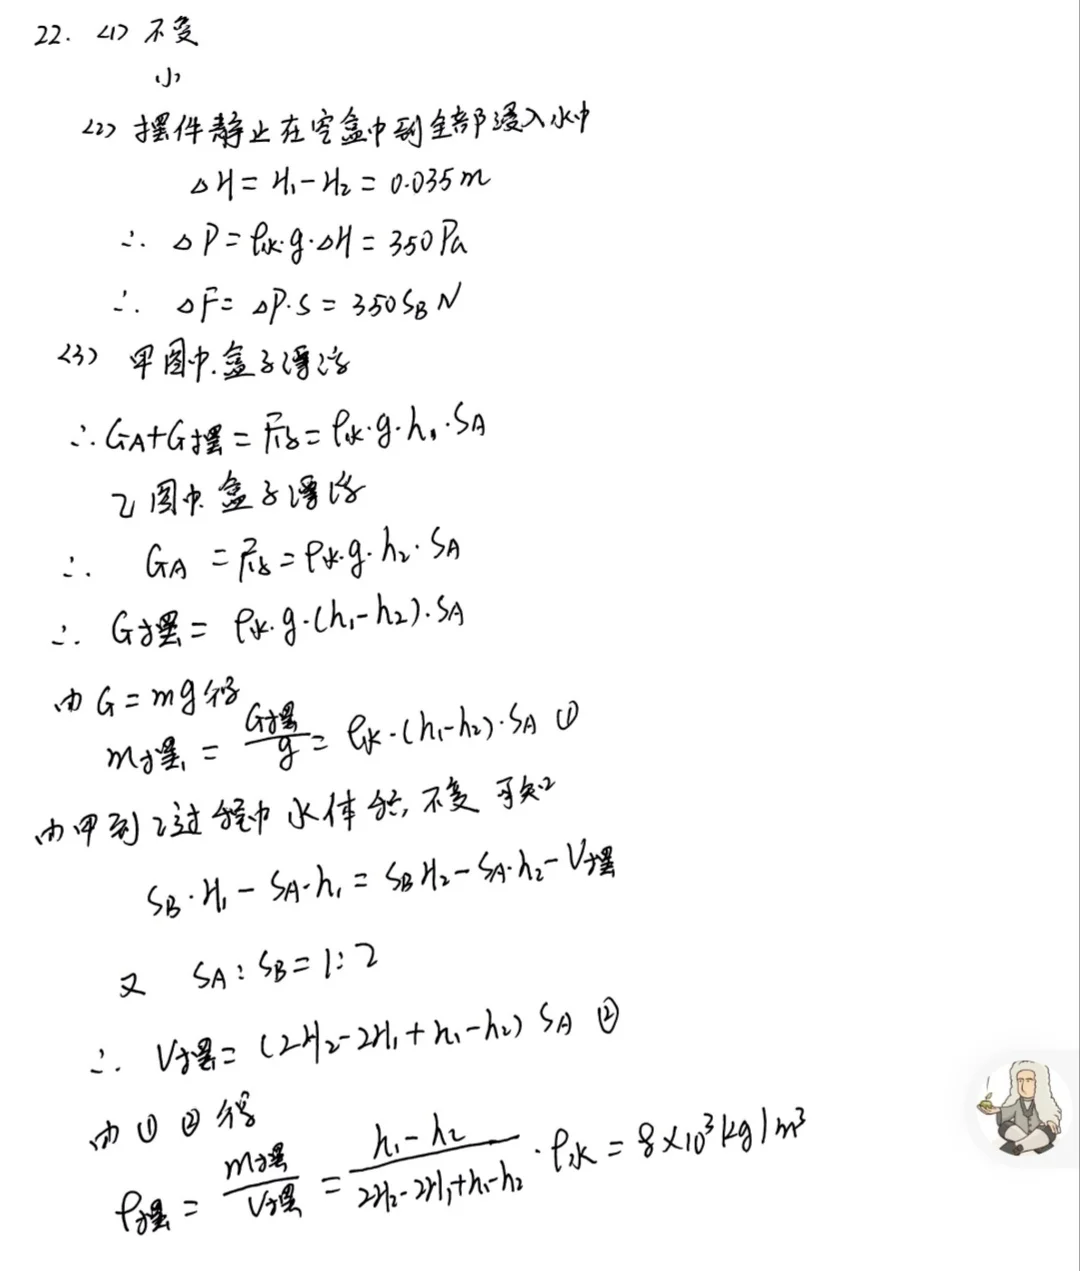 22. <1> 不变
小
<2> 摆件静止在空盒中到全部浸入水中
△H = H₁-H₂ = 0.035m
∴ △P = ρ水·g·△H = 350Pa
∴ △F = △P·S = 350S_B N
<3> 甲图中.盒子漂浮
∴ G_A+G摆 = F浮 = ρ水·g·h₁·S_A
乙图中.盒子漂浮
∴ G_A = F浮 = ρ水·g·h₂·S_A
∴ G摆 = ρ水·g·(h₁-h₂)·S_A
由 G = mg 得
m摆 = G摆/g = ρ水·(h₁-h₂)·S_A ①
由甲到乙过程中 水体积,不变 可知
S_B·H₁ - S_A·h₁ = S_B H₂ - S_A·h₂ - V摆
又 S_A : S_B = 1:2
∴ V摆 = (2H₂-2H₁+h₁-h₂) S_A ②
由 ① ② 得
ρ摆 = m摆/V摆 = (h₁-h₂)/(2H₂-2H₁+h₁-h₂) · ρ水 = 8×10³kg/m³